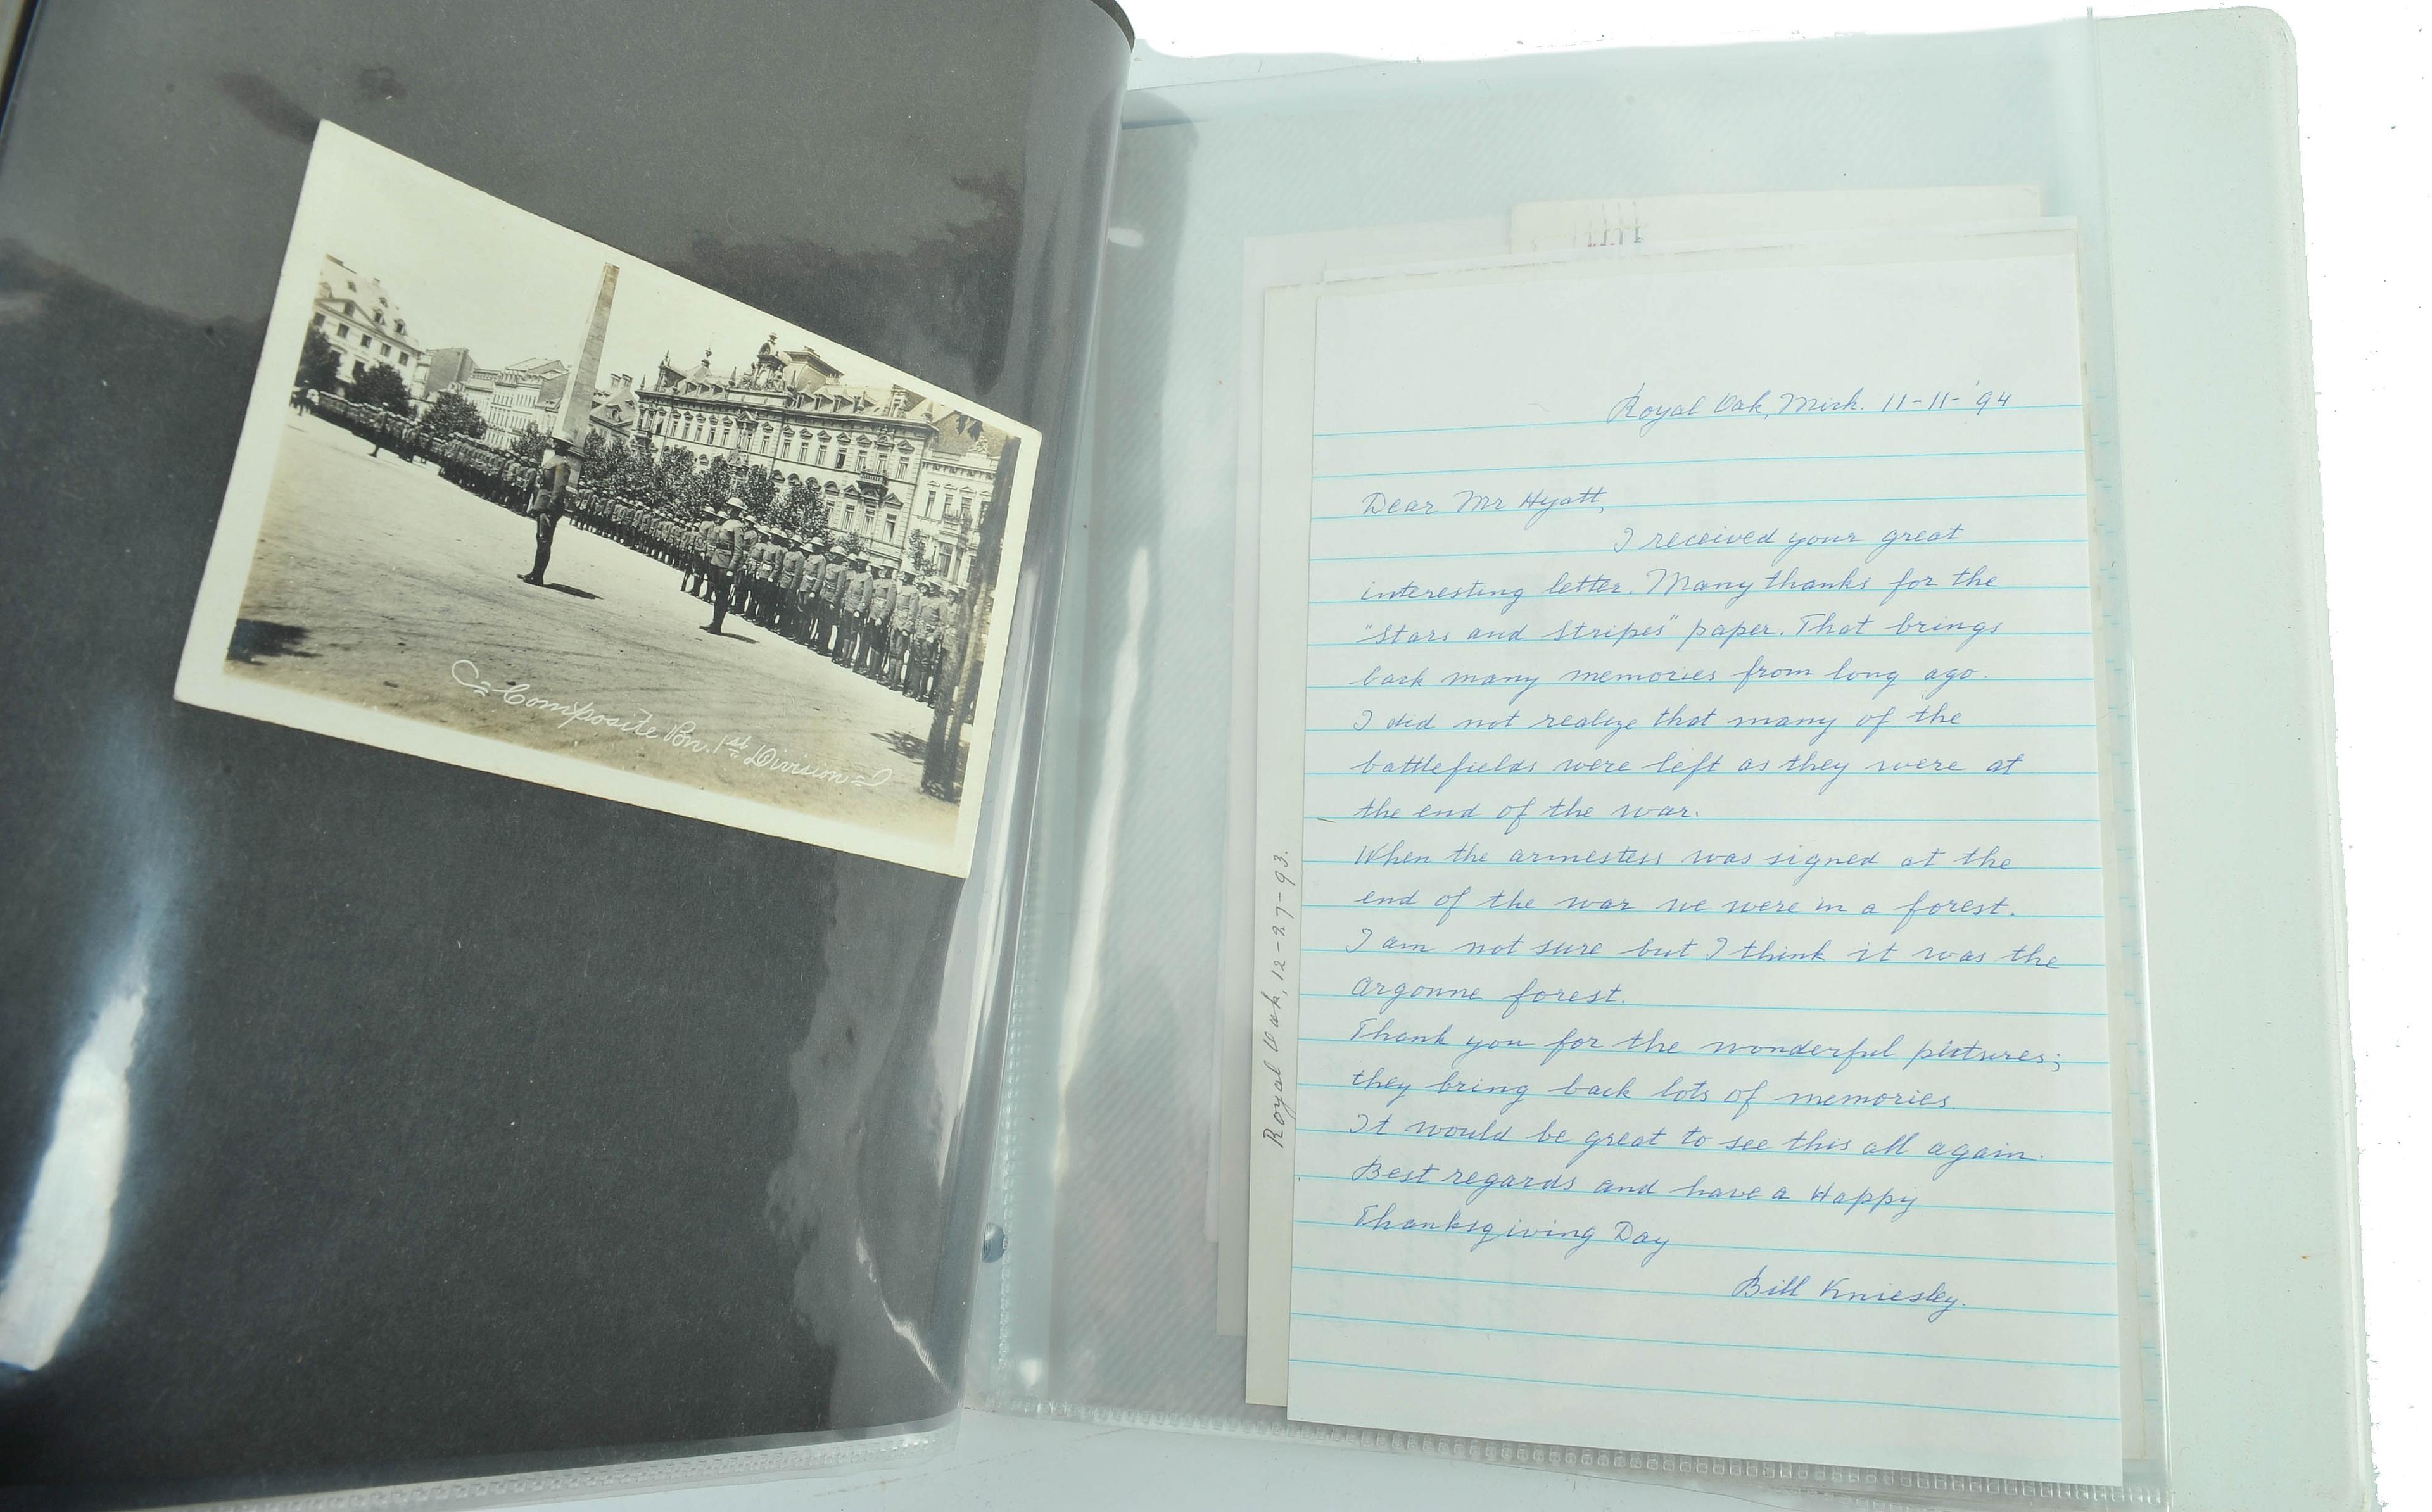 Composite Bn. 1st Division
Royal Oak, 12-27-93.
Royal Oak, Mich. 11-11-'94
Dear Mr Hyatt,
I received your great
interesting letter. Many thanks for the
"Stars and Stripes" paper. That brings
back many memories from long ago.
I did not realize that many of the
battlefields were left as they were at
the end of the war.
When the armestess was signed at the
end of the war we were in a forest.
I am not sure but I think it was the
Argonne forest.
Thank you for the wonderful pictures;
they bring back lots of memories.
It would be great to see this all again.
Best regards and have a Happy
Thanksgiving Day
Bill Kniesley.